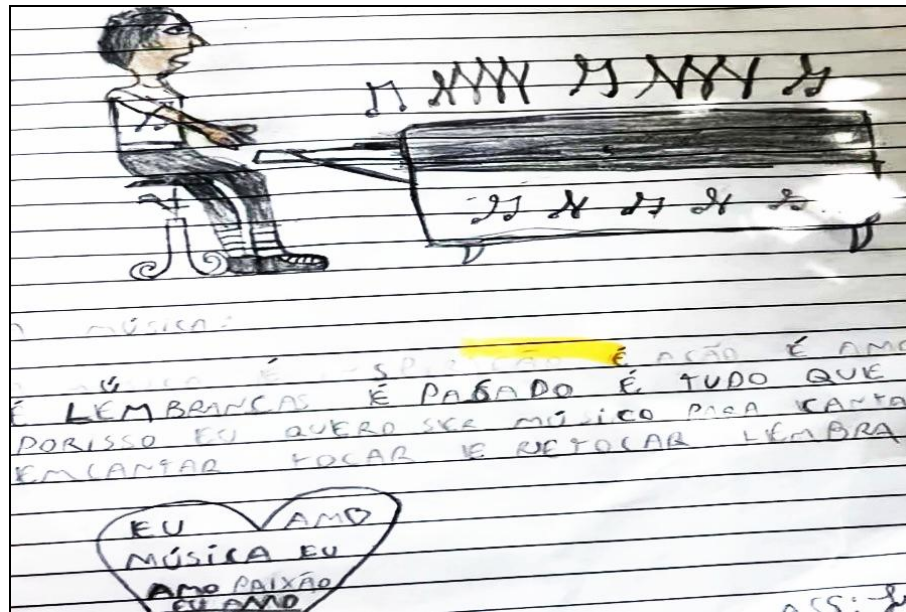 MÚSICA:
MÚSICA É É AÇÃO É AMO
É LEMBRANCAS É PASADO É TUDO QUE
PORISSO EU QUERO SER MÚSICO PARA CANTA
EMCANTAR TOCAR E RETOCAR LEMBRA
EU AMO
MÚSICA EU
AMO PAIXÃO
EU AMO
ASS: